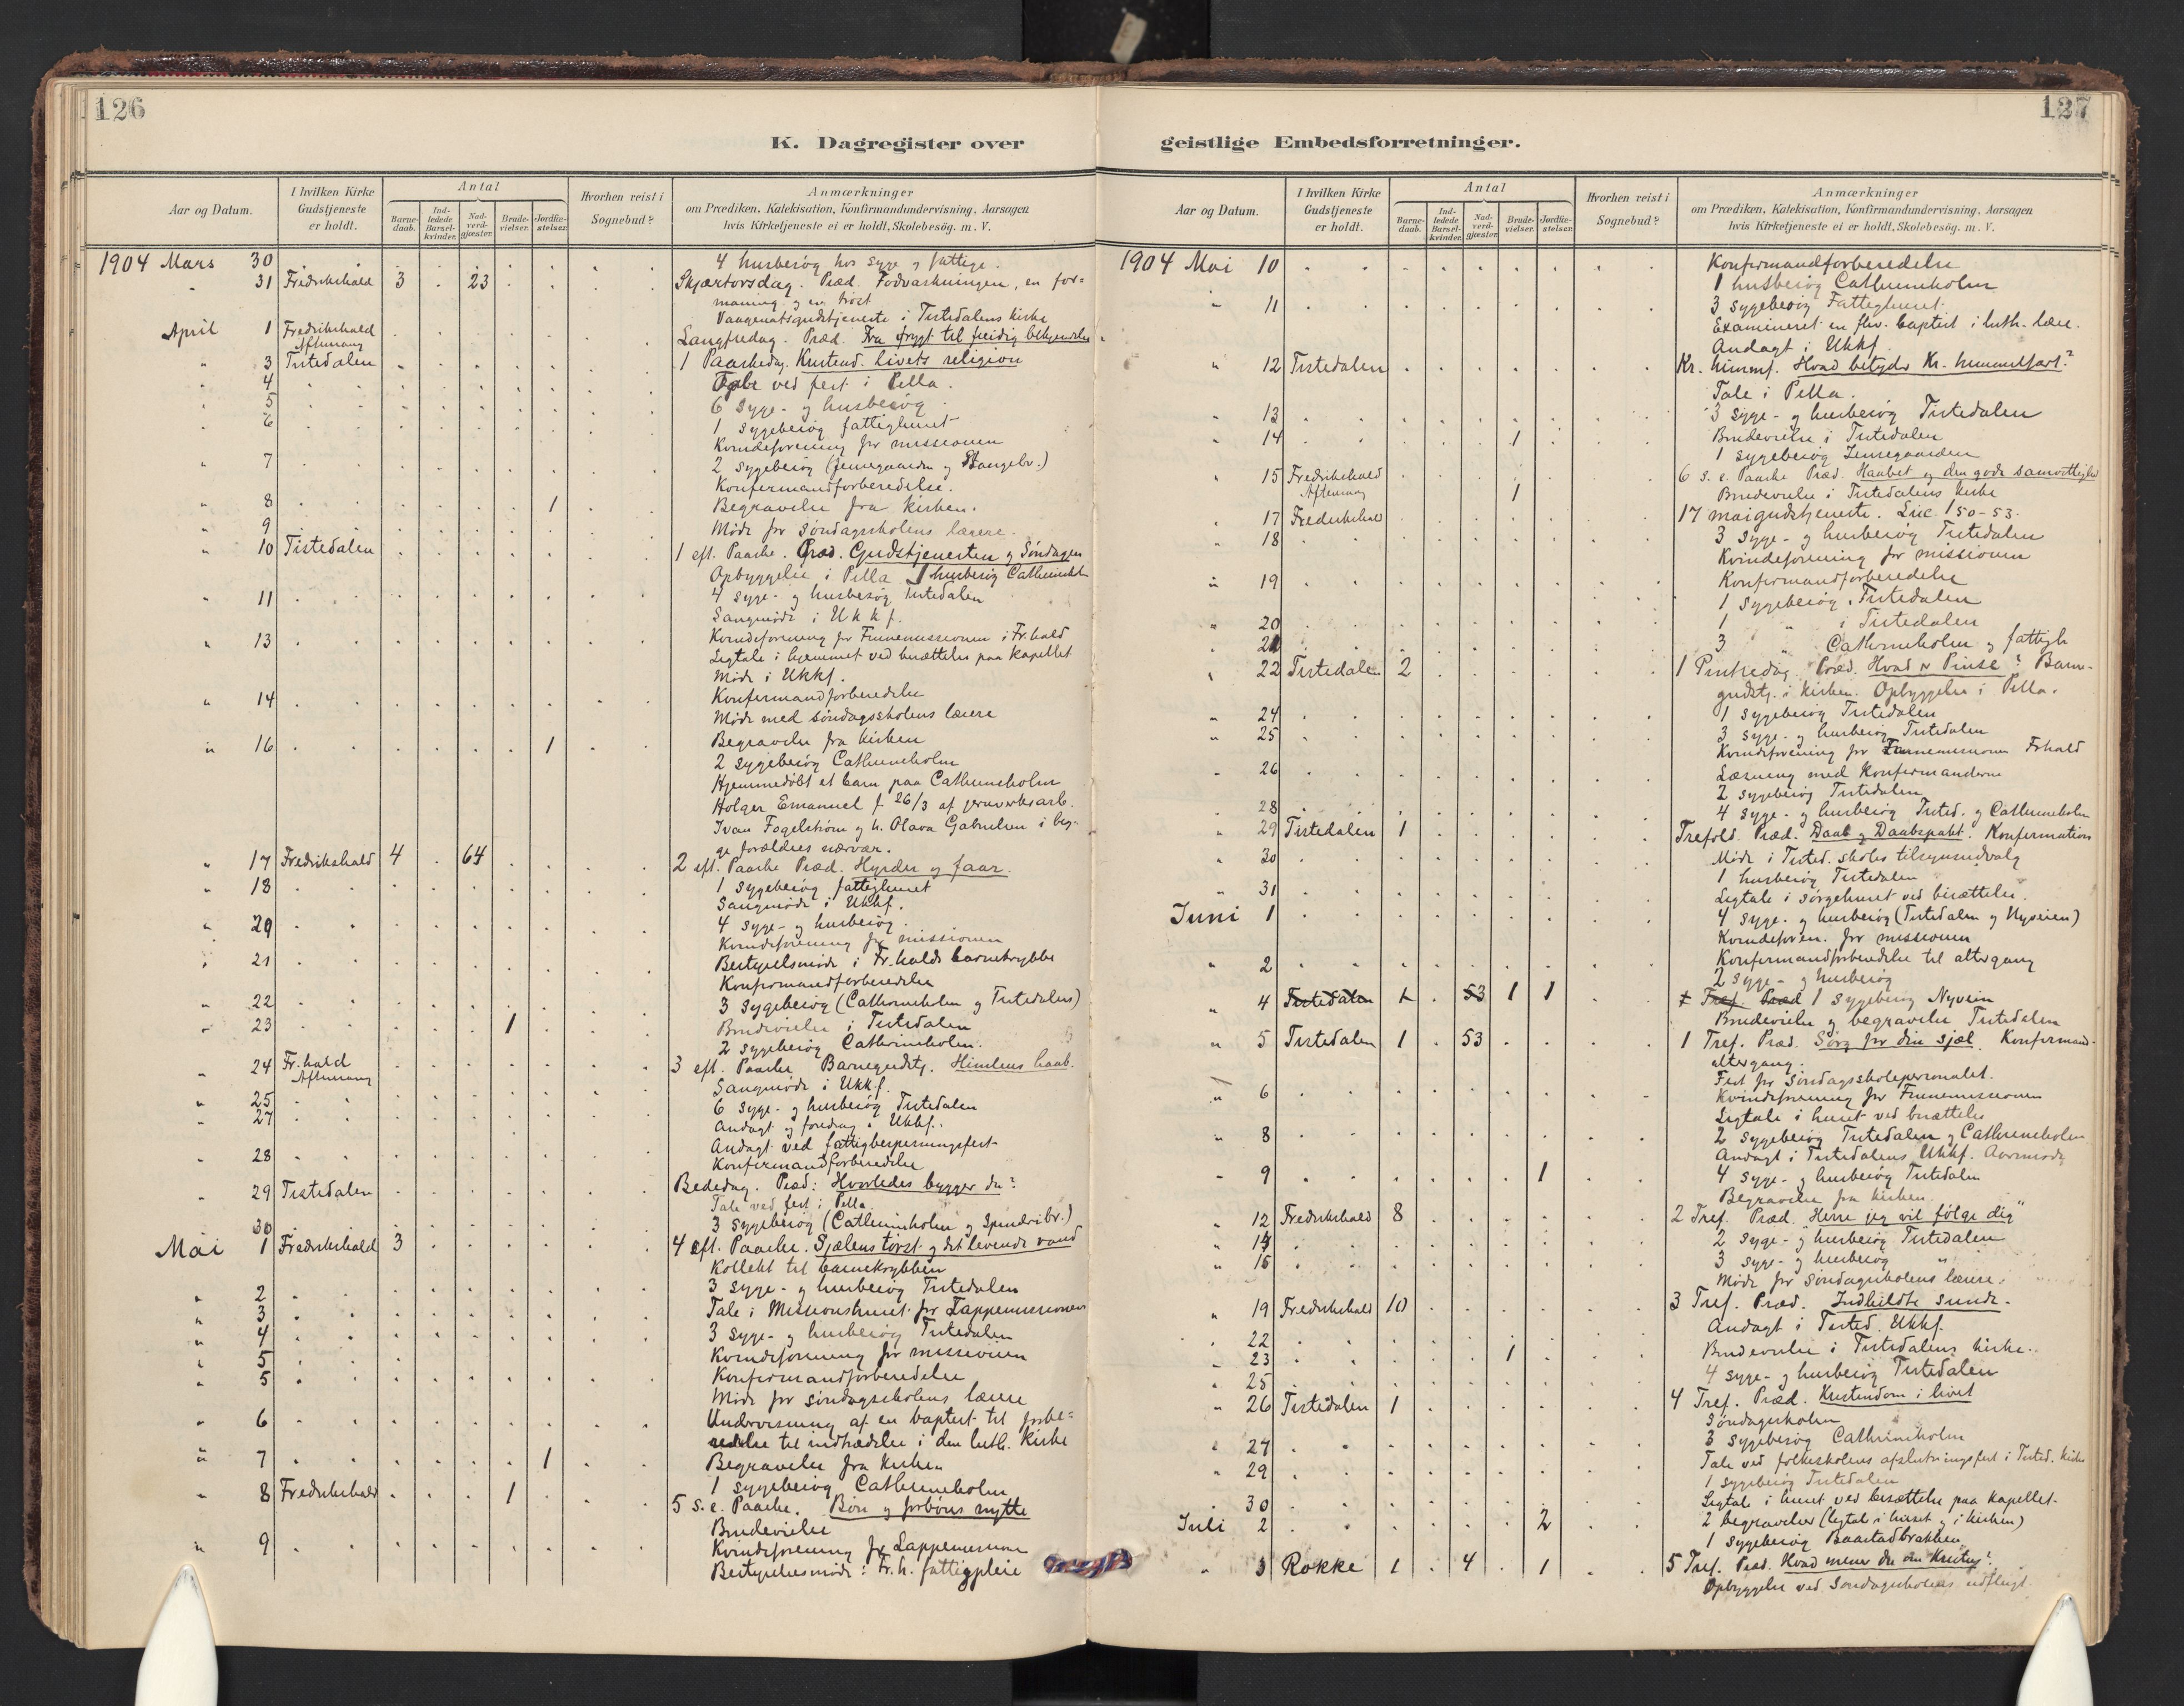 126
K. Dagregister over
Aar og Datum.
I hvilken Kirke Gudstjeneste er holdt.
Antal
Barne-daab.
Ind-ledede Barsel-kvinder.
Nad-verd-gjæster.
Brude-vielser.
Jordfæ-stelser.
Hvorhen reist i Sognebud?
Anmærkninger
om Prædiken, Katekisation, Konfirmandundervisning, Aarsagen
hvis Kirketjeneste ei er holdt, Skolebesög. m. V.
1904 Mars 30 4 husbesög hos syge og fattige.
" 31 Fredrikshald 3 23 Skjærtorsdag. Præd. Fodvaskningen, en for=
maning og en trøst
Tistedalens kirke
April 1 Fredrikshald Langfredag. Præd. Fra frygt til freidig bekjendelse
Aftensang
" 3 Tistedalen 1 Paaskedag. Kristend. livets religion
" 4 Tale ved fest i Pella.
" 5 6 syge- og husbesög.
" 6 1 sygebesög fattighuset
Kvindeforening for missionen
" 7 2 sygebesög
Konfirmandforberedelse.
" 8 1 Begravelse fra kirken.
" 9 Møde for søndagsskolens lærere.
" 10 Tistedalen 1 eft. Paaske. Præd. Gudstjenesten og Søndagen
Opbyggelse i Pella 1 husbesög Cathrineh.
" 11 4 syge- og husbesög Tistedalen
Sangmøde i Ukkf.
" 13 Kvindeforening for Finnemissionen i Fr.hald
Ligtale i hjemmet ved bisættelse paa kapellet
Møde i Ukkf.
" 14 Konfirmandforberedelse
Møde med søndagsskolens lærere
" 16 1 Begravelse fra kirken
2 sygebesög Cathrineholm
Hjemmedöbt et barn paa Cathrineholm
Holger Emanuel f. 26/3 af jernverksarb.
Ivan Fogelström og h. Olava Gabrielsen i beg-
ge forældres nærvær.
" 17 Fredrikshald 4 64 2 eft. Paaske Præd. Hyrder og faar.
" 18 1 sygebesög fattighuset
Sangmøde i Ukkf.
" 20 4 syge- og husbesög.
Kvindeforening for missionen
" 21 Bestyrelsmøde i Fr.halds barnekrybbe
Konfirmandforberedelse
" 22 3 sygebesög (Cathrineholm og Tistedalen)
" 23 1 Brudevielse i Tistedalen
2 sygebesög Cathrineholm.
" 24 Fr.hald 3 eft. Paaske Barnegudstj. Himlens haab.
Aftensang
Sangmøde i Ukkf.
" 25 6 syge- og husbesög Tistedalen
" 27 Andagt og foredrag i Ukkf.
Andagt ved fattigbespisningsfest
" 28 Konfirmandforberedelse
" 29 Tistedalen Bededag. Præd: Hvorledes bygger du?
Tale ved fest i Pella
30 3 sygebesög (Cathrineholm og Spinderibr.)
Mai 1 Fredrikshald 3 4 eft. Paaske. Sjælens törst og det levende vand
Kollekt til barnekrybben
" 2 3 syge- og husbesög Tistedalen
" 3 Tale i Missionshuset for Lappemissionen
" 4 3 syge- og husbesög Tistedalen
" 5 Kvindeforening for missionen
" 5 Konfirmandforberedelse
Møde for søndagsskolens lærere
" 6 Undervisning af en baptist til forbe=
redelse til indtrædelse i den luth. kirke
" 7 1 Begravelse fra kirken
1 sygebesög Cathrineholm
" 8 Fredrikshald 1 5 s. e. Paaske. Bön og forböns nytte
Brudevielse
" 9 Kvindeforening for Lappemission
Bestyrelsesmöde: Fr.h. fattigpleie
127
geistlige Embedsforretninger.
Aar og Datum.
I hvilken Kirke Gudstjeneste er holdt.
Antal
Barne-daab.
Ind-ledede Barsel-kvinder.
Nad-verd-gjæster.
Brude-vielser.
Jordfæ-stelser.
Hvorhen reist i Sognebud?
Anmærkninger
om Prædiken, Katekisation, Konfirmandundervisning, Aarsagen
hvis Kirketjeneste ei er holdt, Skolebesög. m. V.
1904 Mai 10 Konfirmandforberedelse
1 husbesög Cathrineholm
" 11 3 sygebesög Fattighuset.
Examineret en fhv. baptist i luth. lære.
Andagt i Ukkf.
" 12 Tistedalen Kr. himmf. Hvad betyder Kr. himmelfart?
Tale i Pella.
" 13 3 syge- og husbesög Tistedalen
" 14 1 Brudevielse i Tistedalen
1 sygebesög
" 15 Fredrikshald 6 s. e. Paaske Præd. Haabet og den gode samvittighed
Aftensang 1 Brudevielse i Tistedalens kirke
" 17 Frederikshald 17 maigudstjeneste. Luc. 1 50-53.
" 18 3 syge- og husbesög Tistedalen
Kvindeforening for missionen
" 19 Konfirmandforberedelse
1 sygebesög i Tistedalen
" 20 1 " i Tistedalen
" 21 3 " Cathrineholm og fattigh
" 22 Tistedalen 2 1 Pinsedag. Præd. Hvad er Pinse? Barne-
gudstj. i kirken. Opbyggelse i Pella.
" 24 1 sygebesög Tistedalen
" 25 3 syge- og husbesög Tistedalen
Kvindeforening for Finnemissionen Frhald
" 26 Læsning med konfirmanderne
2 sygebesög Tistedalen
28 4 syge- og husbesög Tisted. og Cathrineholm
" 29 Tistedalen 1 Trefold. Præd. Daab og Daabspakt. Konfirmation
" 30 Møde i Tisted. skoles tilsynsudvalg
1 husbesög Tistedalen
" 31 Ligtale i sørgehuset ved bisættelse.
Juni 1 4 syge- og husbesög (Tistedalen og Nyveien)
Kvindeforen. for missionen
" 2 Konfirmandforberedelse til altergang
2 syge- og husbesög
" 4 Tistedalen 1 53 1 1 1 Tref. Præd 1 sygebesög Nyveien
Brudevielse og begravelse Tistedalen
" 5 Tistedalen 1 53 1 Tref. Præd. Sörg for din sjæl. Konfirmand-
altergang.
Fest for Søndagsskolepersonalet.
" 6 Kvindeforening for Finnemissionen
Ligtale i huset ved bisættelse
" 8 2 sygebesög Tistedalen og Cathrineholm
Andagt i Tistedalens Ukkf.
" 9 1 4 syge- og husbesög Tistedalen
Begravelse fra kirken
" 12 Fredrikshald 8 2 Tref. Præd. "Herre jeg vil følge dig"
" 14 2 syge- og husbesög Tistedalen
" 15 3 syge- og husbesög "
Møde for Søndagsskolens lærere.
" 19 Fredrikshald 10 3 Tref. Præd. Indbildte sunde.
Andagt i Tisted. Ukkf.
" 22
" 23 1 Brudevielse i Tistedalens kirke.
" 25 4 syge- og husbesög Tistedalen
" 26 Tistedalen 1 4 Tref. Præd. Kristendom i livet
Søndagsskolen
" 27 3 sygebesög Cathrineholm
" 29 Tale ved folkeskolens afslutningsfest i Tisted. kirke
1 sygebesög Tistedalen
" 30 Ligtale i huset ved bisættelse paa kapellet.
Juli 2 2 2 begravelser (ligtale i huset og i kirken)
1 sygebesög Baastadbrakken
" 3 Rokke 1 4 1 5 Tref. Præd. Hvad mener du om Kristus?
Opbyggelse ved Søndagsskolens udflugt.